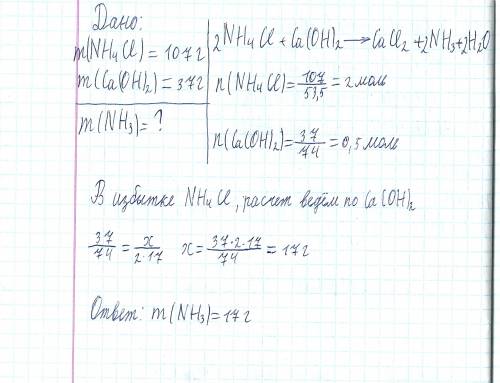 Дано:
m(NH4Cl) = 107г
m(Ca(OH)2) = 37г
m(NH3) = ?
2NH4Cl + Ca(OH)2 → CaCl2 + 2NH3 + 2H2O
n(NH4Cl) = 107/53,5 = 2 моль
n(Ca(OH)2) = 37/74 = 0,5 моль
В избытке NH4Cl, расчет ведём по Ca(OH)2
37/74 = x/2·17 x = 37·2·17/74 = 17г
Ответ: m(NH3) = 17г